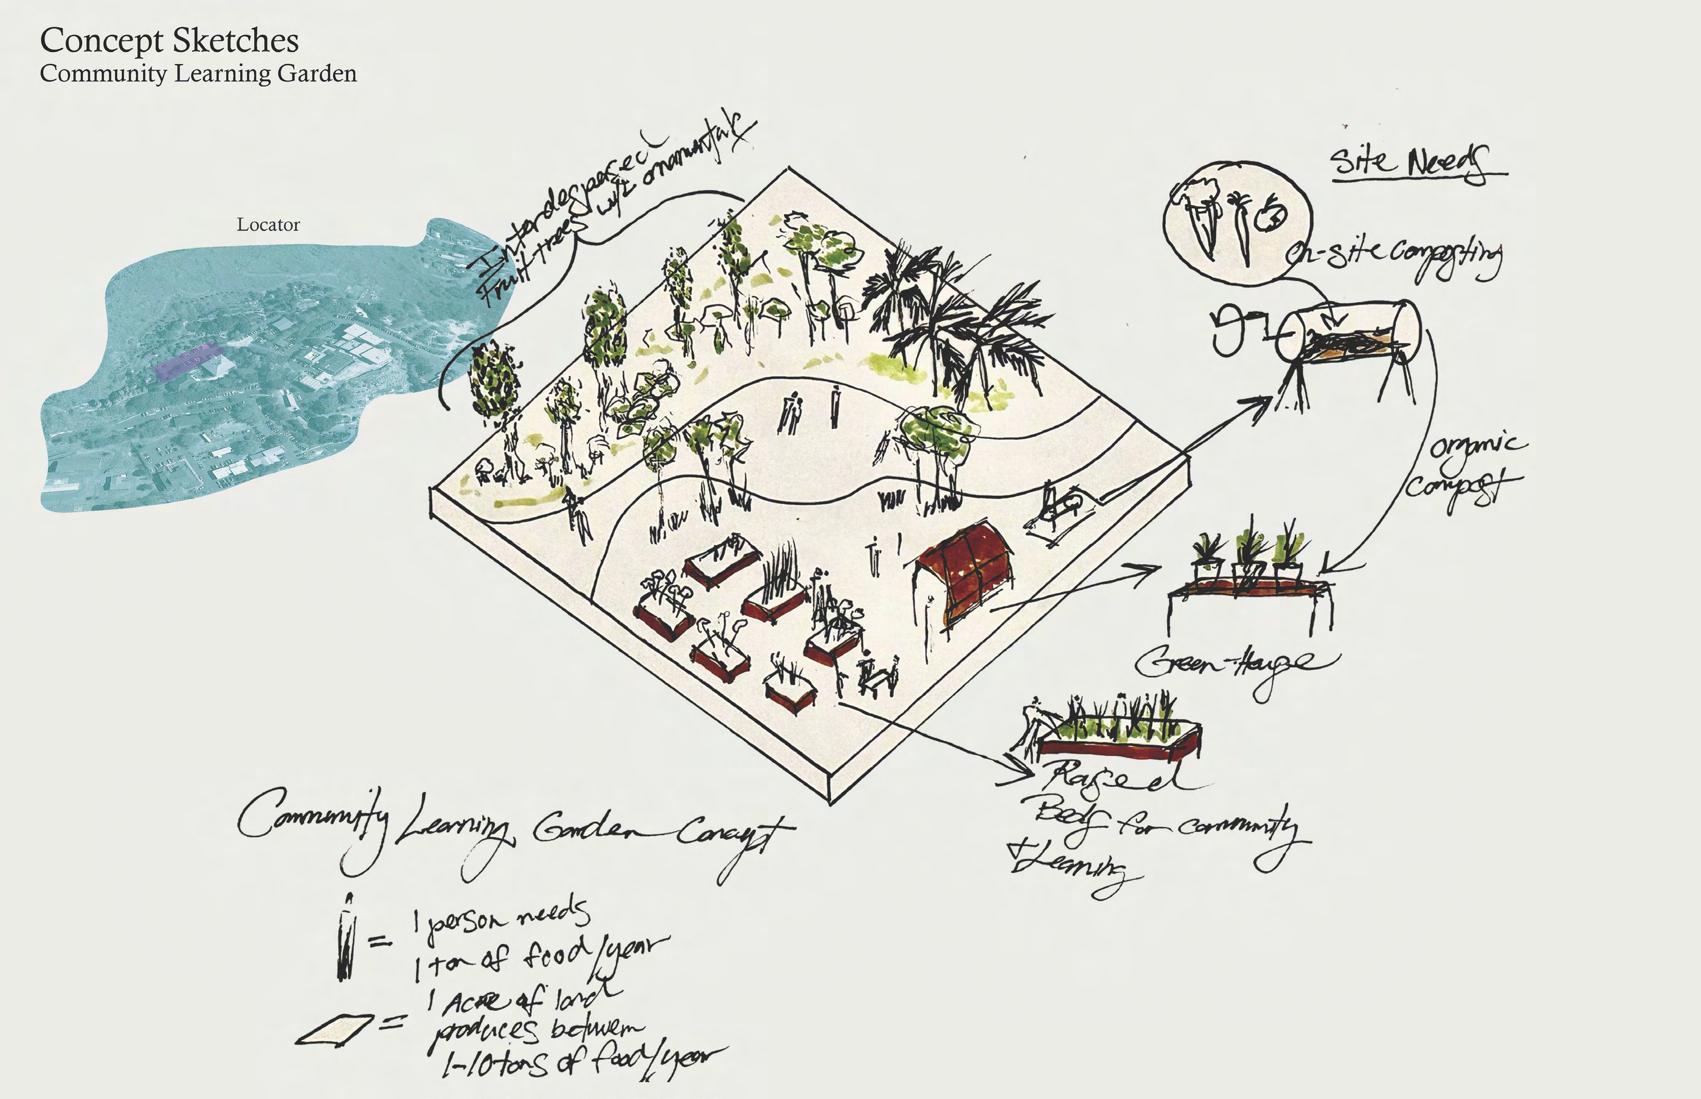 Concept Sketches
Community Learning Garden
Locator
Interdespersed
Fruit trees w/ ornamentals
Site Needs
on-site composting
organic
compost
Green-House
Raised
Beds for community
+ Learning
Community Learning Garden Concept
= 1 person needs
1 ton of food/year
= 1 Acre of land
produces between
1-10 tons of food/year